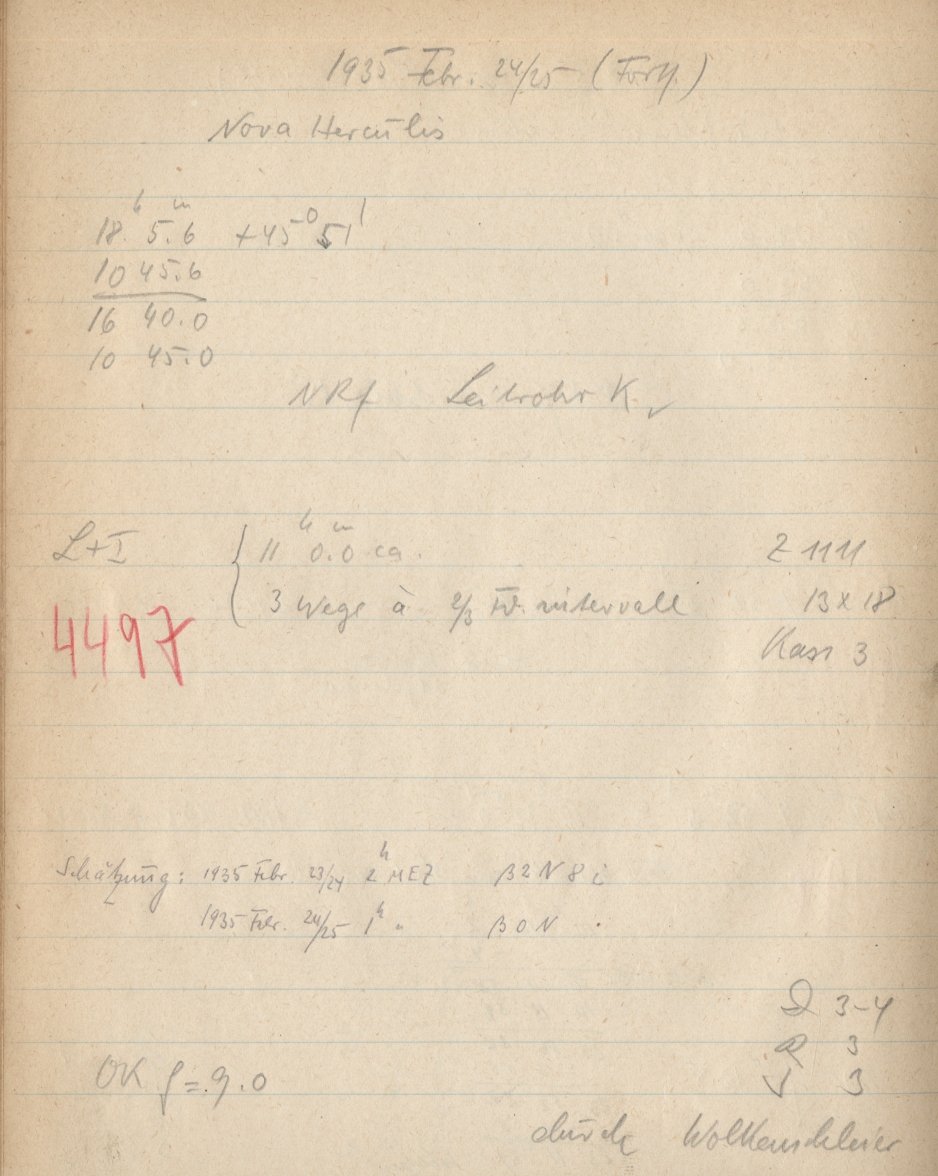 1935 Febr. 24/25 (Forts.)
Nova Herculis
18h 5.m6 +45° 51'
10 45.6
16 40.0
10 45.0
NRf Leitrohr K
L+I { 11h 0.m0 ca. Z 1111
3 Wege à 2/3 intervall 13x18
4497 Kass 3
Schätzung: 1935 Febr. 23/24 2h MEZ β 2 N 8 i
1935 Febr. 24/25 1h " β 0 N
3-4
R 3
OK f = 9.0 3
durch Wolkenschleier